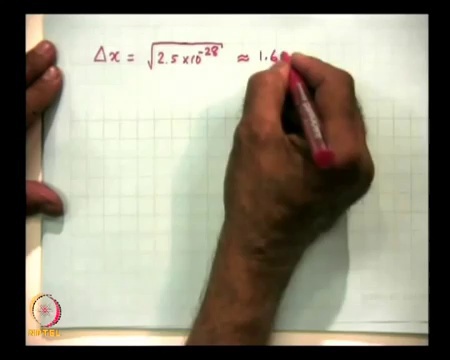 Δx = √2.5×10⁻²⁸ ≈ 1.6
NPTEL